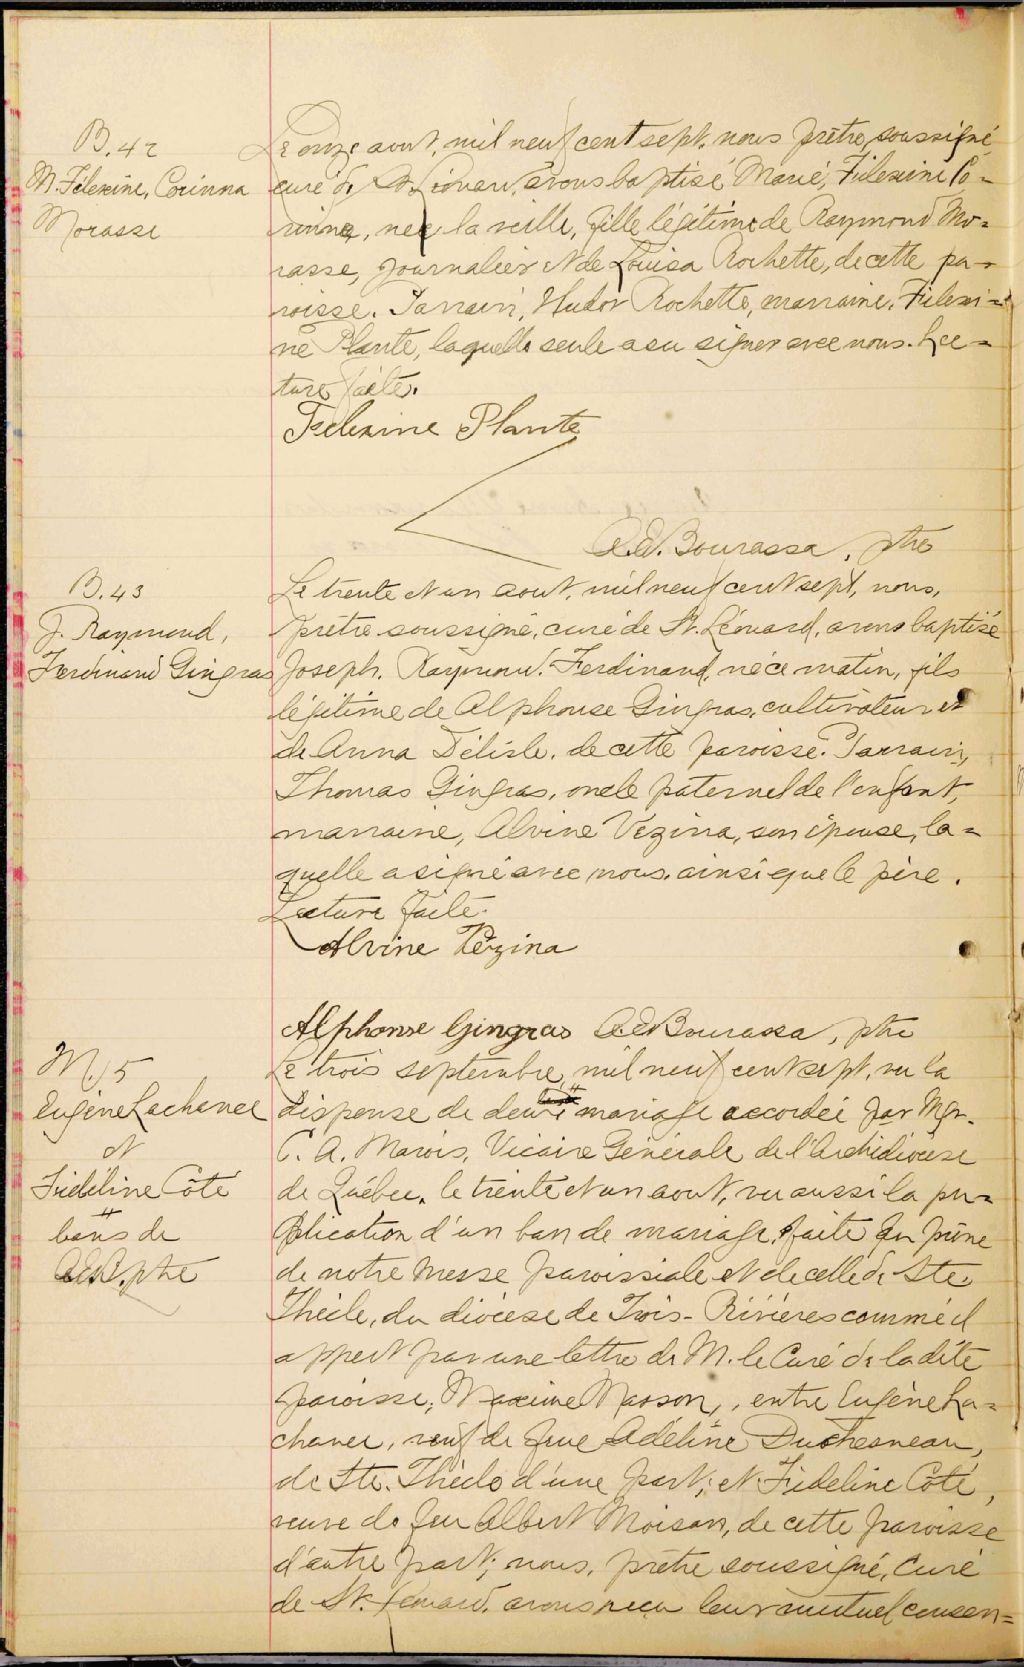 B. 42
M. Félexine, Corinna
Morasse
Le onze aout, mil neuf cent sept, nous prêtre, soussigné,
curé de St. Léonard, avons baptisé Marie, Félexine Co=
rinna, née la veille, fille légitime de Raymond Mo=
rasse, journalier et de Louisa Rochette, de cette pa=
roisse. Parrain, Hudor Rochette, marraine, Félexi=
ne Plante, laquelle seule a su signer avec nous. Lec=
ture faite.
Felexine Plante
A.E. Bourassa, ptre
B. 43
J. Raymond,
Ferdinand Gingras
Le trente et un aout, mil neuf cent sept, nous,
prêtre soussigné, curé de St. Léonard, avons baptisé
Joseph, Raymond, Ferdinand, né ce matin, fils
légitime de Alphonse Gingras, cultivateur et
de Anna Délisle, de cette paroisse. Parrain,
Thomas Gingras, oncle paternel de l'enfant,
marraine, Alvine Vézina, son épouse, la=
quelle a signé avec nous, ainsi que le père.
Lecture faite.
Alvine Vézina
Alphonse Gingras A.E. Bourassa, ptre
M 5
Eugène Lachance
et
Fidéline Côté
bans de
A.E.B. ptre
Le trois septembre, mil neuf cent sept, vu la
dispense de deux mariage accordée par Mgr.
C. A. Marois, Vicaire Générale de l'Archidiocèse
de Québec, le trente et un aout, vu aussi la pu=
blication d'un ban de mariage, faite au prône
de notre Messe paroissiale et de celle de Ste
Thècle, du diocèse de Trois-Rivières comme il
appert par une lettre de M. le Curé de la dite
paroisse, Maxime Masson, entre Eugène La=
chance, veuf de feue Adéline Duchesneau,
de Ste. Thècle d'une part; et Fidéline Côté,
veuve de feu Albert Moisan, de cette paroisse
d'autre part; nous, prêtre soussigné, Curé
de St. Léonard, avons reçu leur mutuel consen=